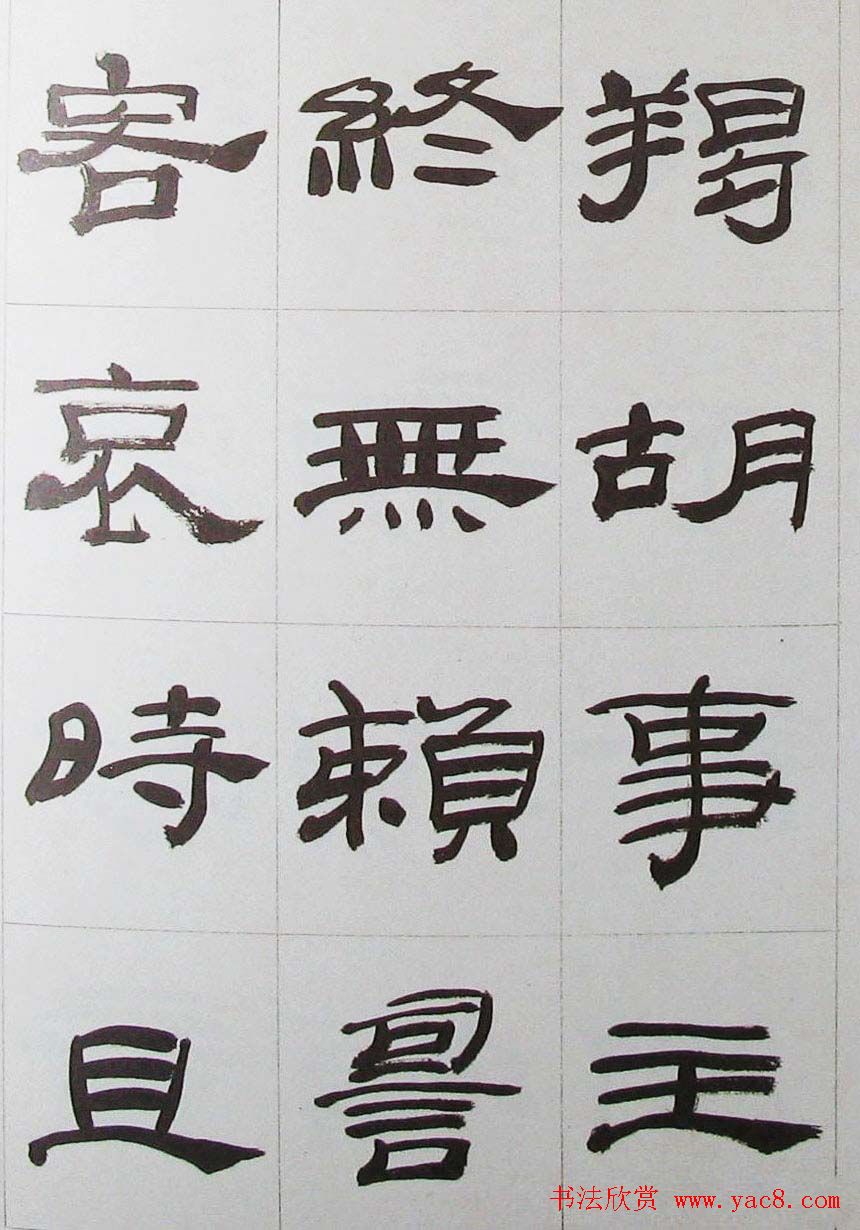 羯胡事主
終無賴詞
客哀時且
书法欣赏 www.yac8.com